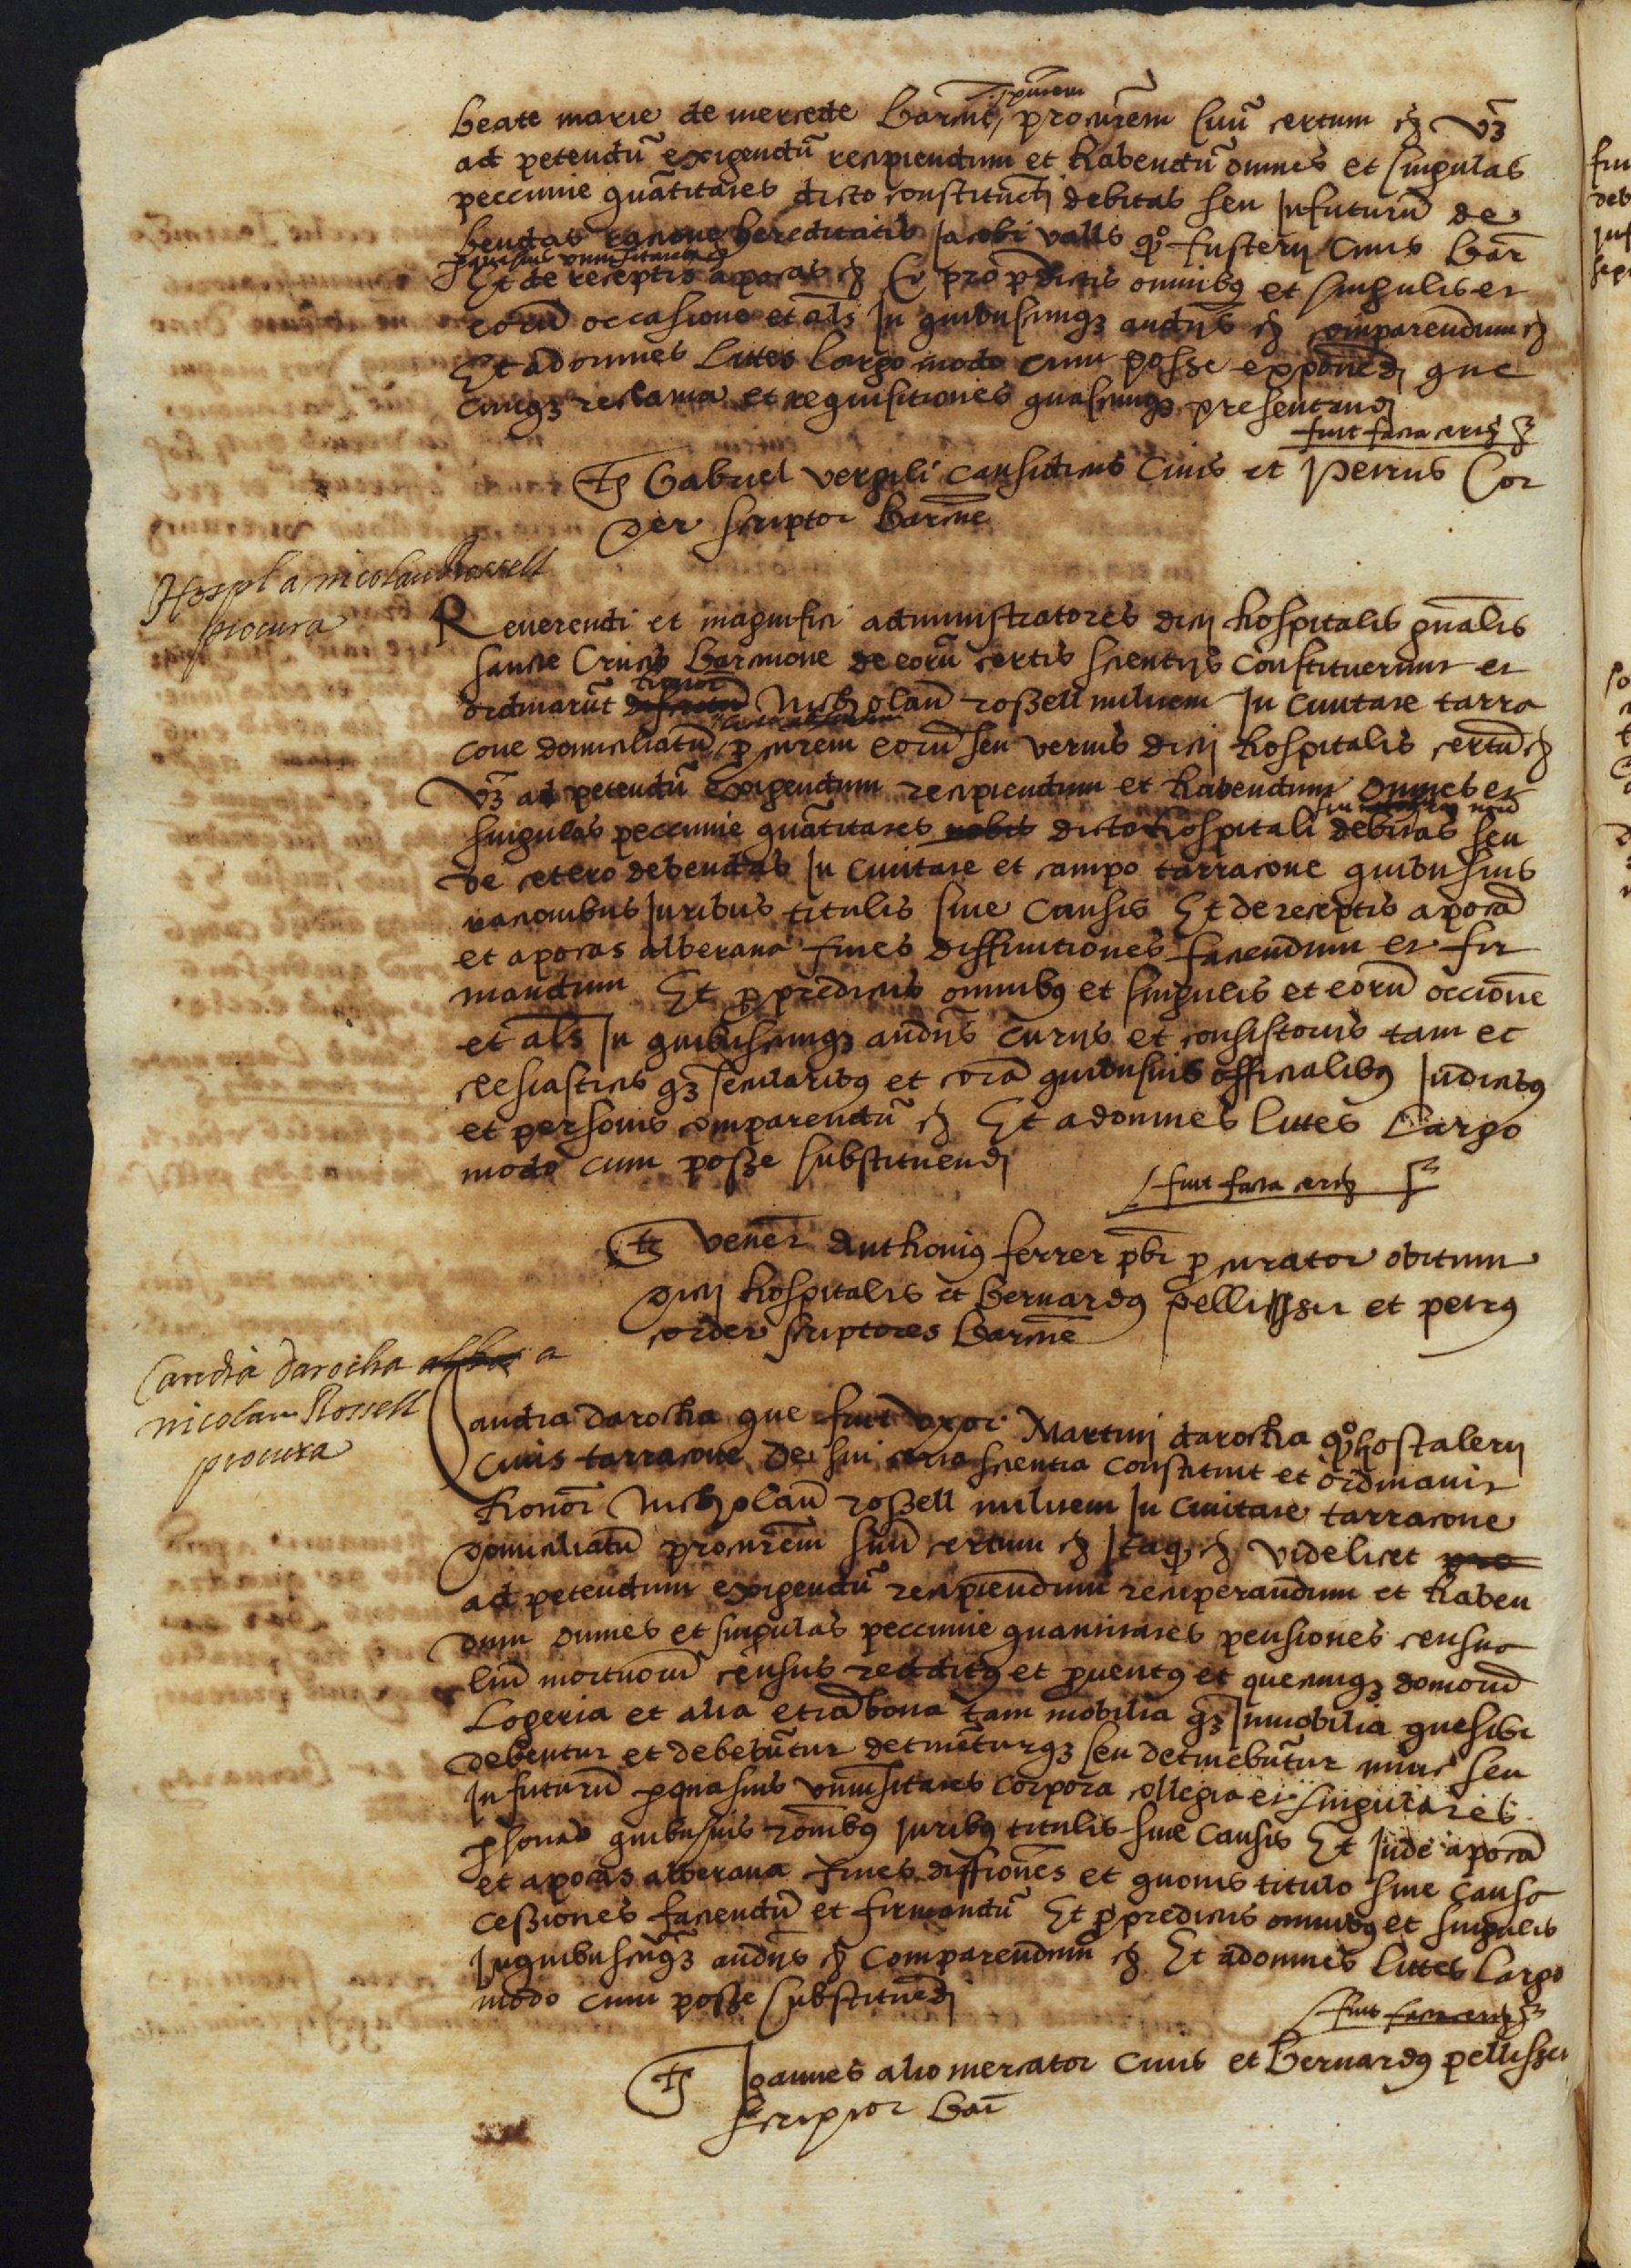 beate marie de mercede Barcne, procurem suū certum etc vz
ad petendū exigendū recipiendum et habendū omnes et singulas
peccunie quātitates dicto constituenti debitas seu Infuturū de
bendas racione hereditatis Jacobi valls qº fusterij Civis Bar
Et de receptis apocas etc Et pro pdictis omnibꝰ et singulis et
eorū occasione et als In quibuscumqꝫ audijs etc comparendum etc
Et ad omnes lites largo modo cum posse exponēdi que
cumqꝫ reclama et requisitiones quascumqꝫ presentandi
fuit facta
Ts Gabriel vergili causidicus Civis et Petrus Cor
der scriptor Barcne
Hospl a nicolau Rossell
procura
Reverendi et magnifici administratores dicti hospitalis gnalis
sancte Crucis Barcinone de eorū certis scientijs constituerunt et
ordinarūt Nicholaū rossell militem In Civitate tarra
cone domiciliatū pcurem eorū seu verius dicti hospitalis certū etc
vz ad petendū exigendum recipiendum et habendum omnes et
singulas peccunie quātitates nobis dicto hospitali debitas seu
de cetero debendas In Civitate et campo tarracone quibusvis
racionibus Juribus titulis sive causis Et de receptis apocā
et apocas albarana fines diffinitiones faciendum et fir
mandum Et p predictis omnibꝰ et singulis et eorū occione
et als In quibuscumqꝫ audijs curijs et consistorijs tam ec
clesiasticis qꝫ secularibꝰ et corā quibusvis officialibꝰ Judicibꝰ
et personis comparendū etc Et ad omnes lites largo
modo cum posse substituendi
fuit facta
Ts vener Anthoniꝰ ferrer pbr pcurator obituum
dicti hospitalis et Bernardꝰ pellisser et petrꝰ
corder scriptores Barcne
Candia darocha a
nicolau Rossell
procura
Candia darocha que fuit uxor Martini darocha qº hostalerij
Civis tarracone de sui certa scientia constituit et ordinavit
honor Nicholaū rossell militem In Civitate tarracone
domiciliatū procurem suū certum etc Itaq etc videlicet pro
ad petendum exigendū recipiendum recuperandum et haben
dum omnes et singulas peccunie quantitates pensiones censua
liū mortuorū census redditꝰ et pventꝰ et quecumqꝫ domorū
Logeria et alia etiā bona tam mobilia qꝫ Inmobilia que sibi
debentur et debebūtur detinēturqꝫ seu detinebūtur nunc seu
In futurū p quasvis universitates corpora collegia et singulares
psonas quibusvis rōnibꝰ Juribꝰ titulis sive causis Et Inde apocā
et apocas albarana fines diffiones et quovis titulo sive causa
cessiones faciendū et firmandū Et p predictis omnibꝰ et singulis
In quibuscūqꝫ audijs etc comparendum etc Et ad omnes lites largo
modo cum posse substituēdi
fuit facta
Ts Joannes alio mercator Civis et Bernardꝰ pellisser
scriptor Bar